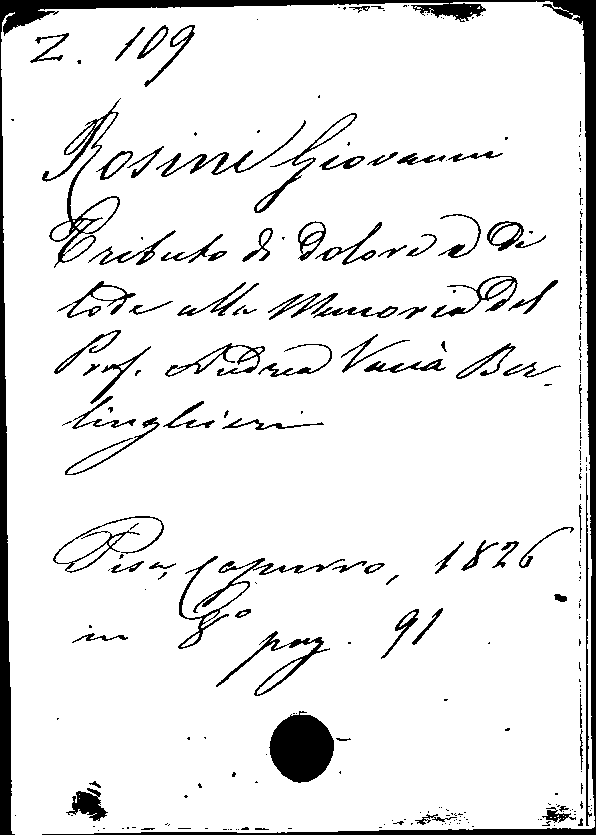 Z. 109
Rosini Giovanni
Tributo di dolore e di
lode alla Memoria del
Prof. Andrea Vaccà Ber-
linghieri
Pisa, Capurro, 1826
in 8º pag. 91